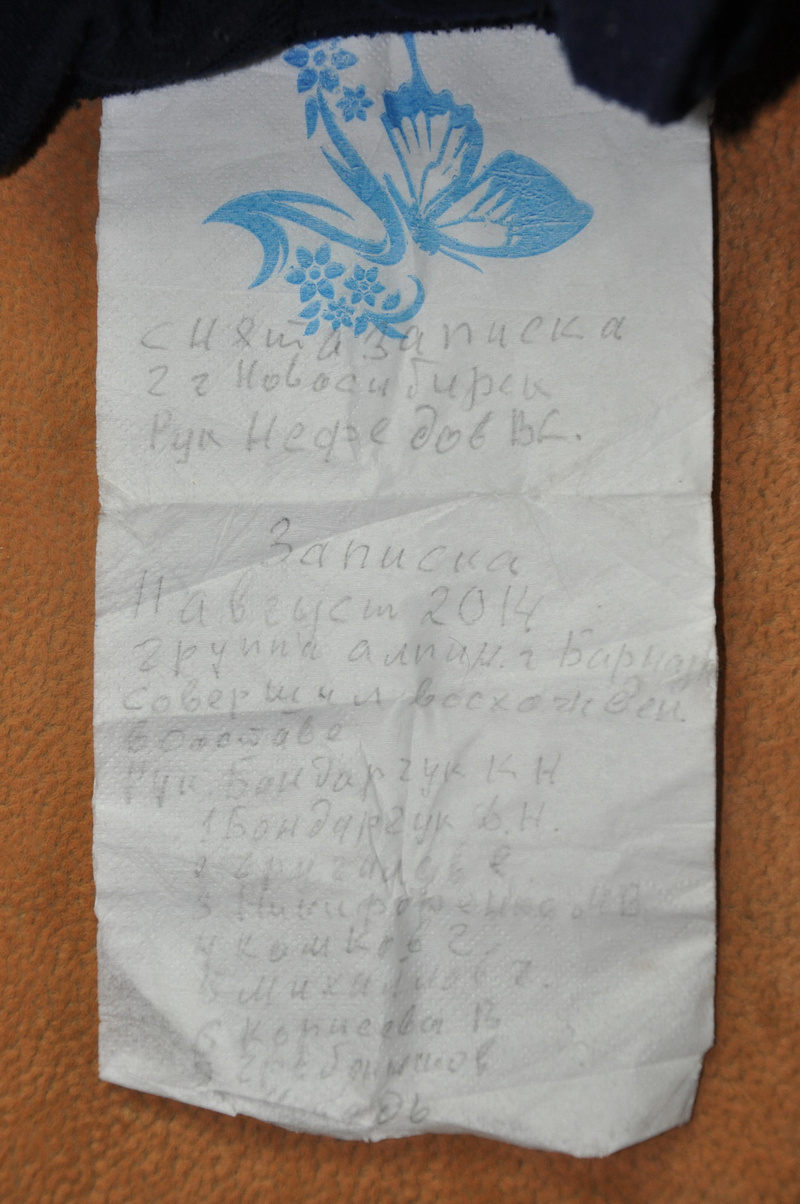 снята записка
г г Новосибирск
Рук Нефедов ВГ.
Записка
11 август 2014
группа альпин. г Барнаул
совершил восхожден.
в составе
Рук. Бондарчук К Н
1 Бондарчук В.Н.
2
3 Никифоренко
4 Кошков Г.
5 Михайлов Г.
6 Корисева В
7 Гребанщов